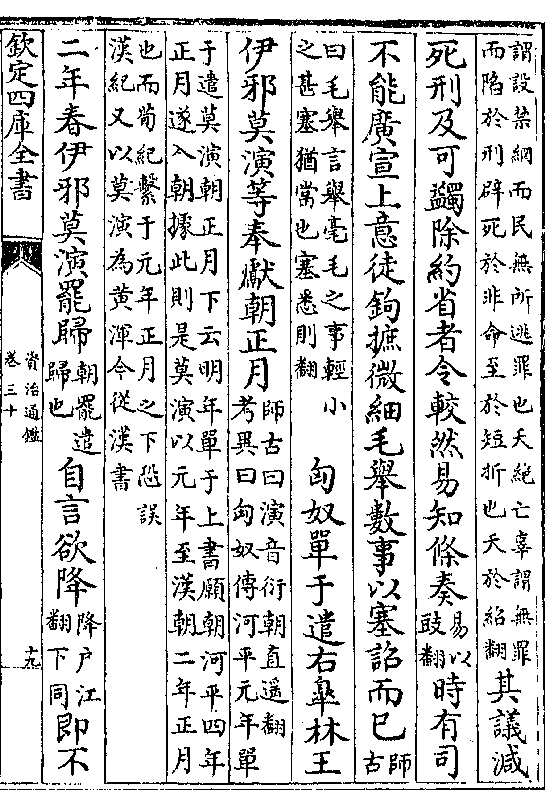 謂設禁網而民無所逃罪也夭絶亡辜謂無罪
而陷於刑辟死於非命至於短折也夭於紹翻其議減
死刑及可蠲除約省者令較然易知條奏易以豉翻時有司
不能廣宣上意徒鉤摭微細毛舉數事以塞詔而已師古
曰毛舉言舉毫毛之事輕小
之甚塞猶當也塞悉則翻匈奴單于遣右臯林王
伊邪莫演等奉獻朝正月師古曰演音衍朝直遥翻
考異曰匈奴傳河平元年單
于遣莫演朝正月下云明年單于上書願朝河平四年
正月遂入朝據此則是莫演以元年至漢朝二年正月
也而荀紀繫于元年正月之下恐誤
漢紀又以莫演為黄渾今從漢書
二年春伊邪莫演罷歸朝罷遣歸也自言欲降降户江翻下同即不
欽定四庫全書
資治通鑑
卷三十
十九